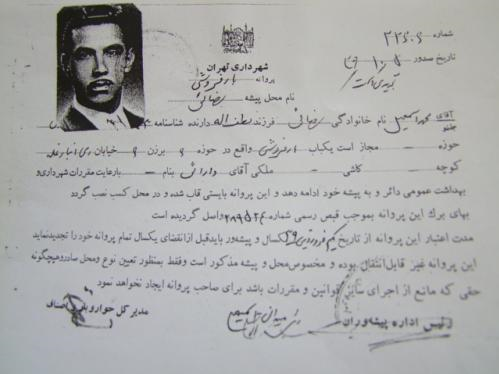 شماره ۲۲۶۰۶
تاریخ صدور
شهرداری تهران
پروانه بارفروشی
نام محل پیشه رضائی
آقای محمد اسمعیل نام خانوادگی رضائی فرزند لطف اله دارنده شناسنامه
حوزه - مجاز است یکباب بارفروشی واقع در حوزه ۶ برزن ۶ خیابان
کوچه - کاشی - ملکی آقای دارائی بنام - بارعایت مقررات شهرداری و
بهداشت عمومی دائر و به پیشه خود ادامه دهد و این پروانه بایستی قاب شده و در محل کسب نصب گردد
بهای برگ این پروانه بموجب قبض رسمی شماره واصل گردیده است
مدت اعتبار این پروانه از تاریخ یکم فروردین ۲۹ یکسال و پیشه‌ور باید قبل از انقضای یکسال تمام پروانه خود را تجدید نماید
این پروانه غیر قابل انتقال بوده و مخصوص محل و پیشه مذکور است و فقط بمنظور تعیین نوع و محل صادر و هیچگونه
حقی که مانع از اجرای سایر قوانین و مقررات باشد برای صاحب پروانه ایجاد نخواهد نمود
رئیس اداره پیشه‌وران
مدیر کل خواروبار و اصناف